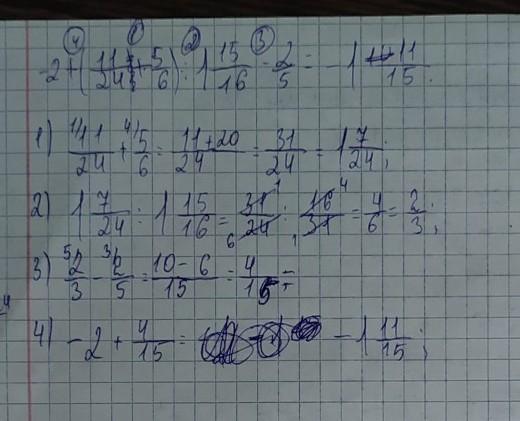 ④ ① ② ③
-2+(11/24+5/6):1 15/16-2/5=-1 11/15.
1) ¹⁾11/24+⁴⁾5/6=(11+20)/24=31/24=1 7/24;
2) 1 7/24:1 15/16=31/24:16/31=4/6=2/3;
3) ⁵⁾2/3-³⁾2/5=(10-6)/15=4/15;
4) -2+4/15= -1 11/15;